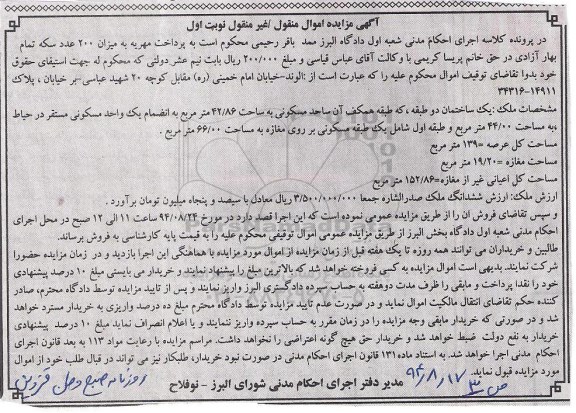 آگهی مزایده اموال منقول /غیر منقول نوبت اول
در پرونده کلاسه اجرای احکام مدنی شعبه اول دادگاه البرز ممد باقر رحیمی محکوم است به پرداخت مهریه به میزان ۲۰۰ عدد سکه تمام
بهار آزادی در حق خانم پریسا کریمی با وکالت آقای عباس قیاسی و مبلغ ۲۰۰/۰۰۰ ریال بابت نیم عشر دولتی که محکوم له جهت استیفای حقوق
خود بدوا تقاضای توقیف اموال محکوم علیه را که عبارت است از :الوند-خیابان امام خمینی (ره) مقابل کوچه ۲۰ شهید عباسی-سر خیابان ، پلاک
۱۴۹۱۱-۳۴۳۱۶
مشخصات ملک :یک ساختمان دو طبقه ،که طبقه همکف آن ساحد مسکونی به ساحت ۴۲/۸۶ متر مربع به انضمام یک واحد مسکونی مستقر در حیاط
،به مساحت ۴۴/۰۰ متر مربع و طبقه اول شامل یک طبقه مسکونی بر روی مغازه به مساحت ۶۶/۰۰ متر مربع .
مساحت کل عرصه =۱۳۹ متر مربع
مساحت مغازه =۱۹/۲۰ متر مربع
مساحت کل اعیانی غیر از مغازه=۱۵۲/۸۶ متر مربع
ارزش ملک: ارزش ششدانگ ملک صدرالشاره جمعا ۳/۵۰۰/۰۰۰/۰۰۰ ریال معادل با سیصد و پنجاه میلیون تومان برآورد .
و سپس تقاضای فروش ان را از طریق مزایده عمومی نموده است که این اجرا قصد دارد در مورخ ۹۴/۰۸/۲۴ ساعت ۱۱ الی ۱۲ صبح در محل اجرای
احکام مدنی شعبه اول دادگاه بخش البرز از طریق مزایده عمومی اموال توقیفی محکوم علیه را به قیمت پایه کارشناسی به فروش برساند.
طالبین و خریداران می توانند همه روزه تا یک هفته قبل از زمان مزایده از اموال مورد مزایده با هماهنگی این اجرا بازدید و در زمان مزایده حضورا
شرکت نمایند. بدیهی است اموال مزایده به کسی فروخته خواهد شد که بالاترین مبلغ را پیشنهاد نمایند و خریدار می بایستی مبلغ ۱۰ درصد پیشنهادی
خود را نقدا پرداخت و مابقی را ظرف مدت دوهفته به حساب سپرده دادگستری البرز واریز نمایند و پس از تایید مزایده توسط دادگاه محترم، صادر
کننده حکم تقاضای انتقال مالکیت اموال نماید و در صورت عدم تایید مزایده توسط دادگاه محترم مبلغ ده درصد واریزی به خریدار مسترد خواهد
شد و در صورتی که خریدار مابقی وجه مزایده را در زمان مقرر به حساب سپرده واریز ننمایند و یا اعلام انصراف نماید مبلغ ۱۰ درصد پیشنهادی
خریدار به نفع دولت ضبط خواهد شد و خریدار حق هیچ گونه اعتراضی را نخواهد داشت. مراسم مزایده با رعایت مواد ۱۱۳ به بعد قانون اجرای
احکام مدنی اجرا خواهد شد. به استناد ماده ۱۳۱ قانون اجرای احکام مدنی در صورت نبود خریدار، طلبکار نیز می تواند در قبال طلب خود از اموال
مورد مزایده قبول نماید.
مدیر دفتر اجرای احکام مدنی شورای البرز - نوفلاح
ص ۳ ۹۴/۸/۱۷
روزنامه صبح وصل قزوین